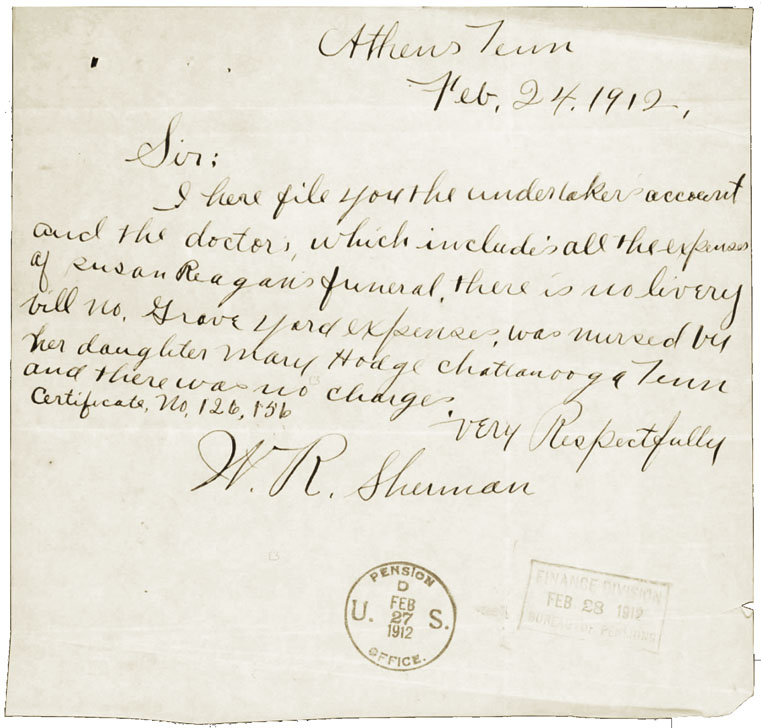 Athens Tenn
Feb. 24. 1912,
Sir:
I here file you the undertaker's account
and the doctor's, which include's all the expenses
of Susan Reagan's funeral, there is no livery
bill no. Grave yard expenses, was nursed by
her daughter Mary Hodge Chattanooga Tenn
and there was no charges.
Certificate, No, 126, 156
very Respectfully
W. R. Sherman
PENSION
D
U. S.
FEB
27
1912
OFFICE.
FINANCE DIVISION
FEB 28 1912
BUREAU OF PENSIONS